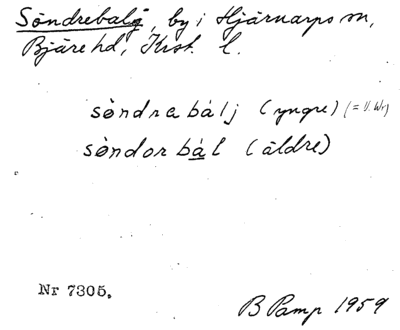 Söndrebalg, by i Hjärnarps sn,
Bjäre hd, Krist. l.
sòndra bálj (yngre) (= V. Wr)
sòndor bál (äldre)
Nr 7305.
B Pamp 1959